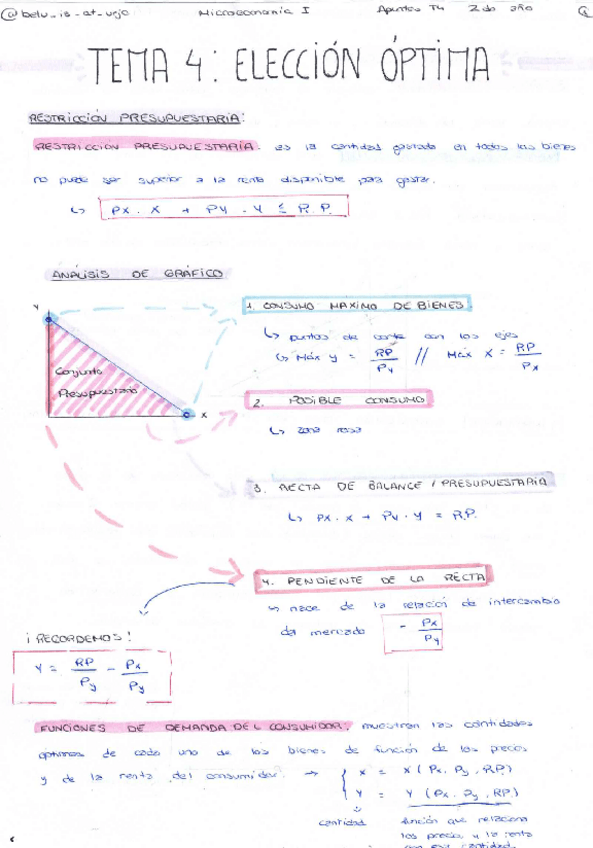 @belu_is_at_urjc Microeconomía I Apuntes T4 2do año
TEMA 4: ELECCIÓN ÓPTIMA
RESTRICCIÓN PRESUPUESTARIA:
RESTRICCIÓN PRESUPUESTARIA: es la cantidad gastada en todos los bienes
no puede ser superior a la renta disponible para gastar.
↳ Px . X + Py . Y ≤ R.P.
ANÁLISIS DE GRÁFICO
Y
1. CONSUMO MÁXIMO DE BIENES.
↳ puntos de corte con los ejes
↳ Máx Y = RP/Py // Máx X = RP/Px
Conjunto
Presupuestario
X
2. POSIBLE CONSUMO
↳ zona rosa
3. RECTA DE BALANCE / PRESUPUESTARIA
↳ Px . X + Py . Y = R.P.
4. PENDIENTE DE LA RECTA
↳ nace de la relación de intercambio
del mercado - Px/Py
¡RECORDEMOS!
Y = RP/Py - Px/Py
FUNCIONES DE DEMANDA DEL CONSUMIDOR: muestran las cantidades
óptimas de cada uno de los bienes de función de los precios
y de la renta del consumidor. → { X = X (Px, Py, RP)
Y = Y (Px, Py, RP)
cantidad función que relaciona
los precios y la renta
con esa cantidad